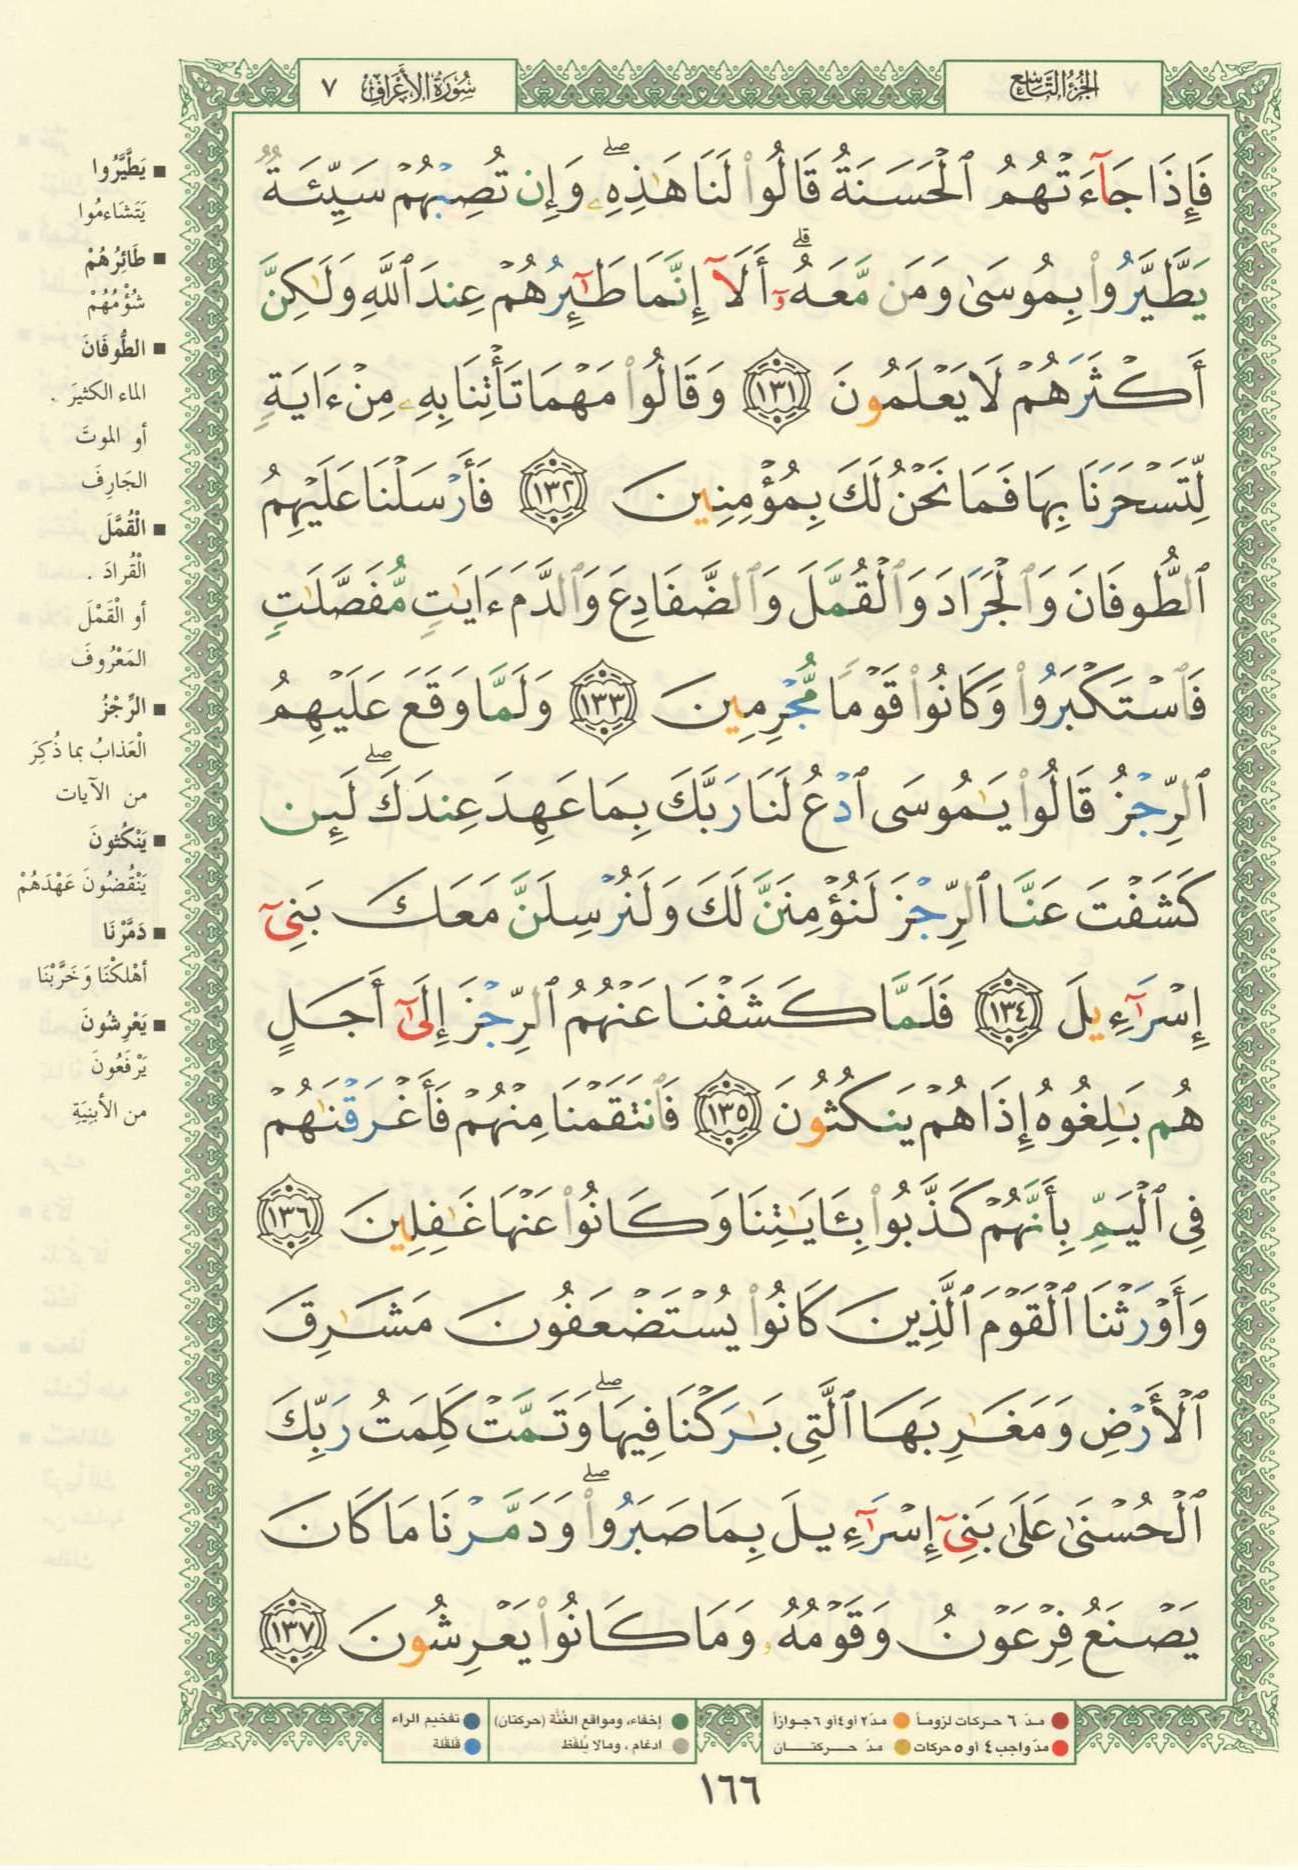 الجزء التاسع
سورة الأعراف ٧
فَإِذَا جَآءَتْهُمُ ٱلْحَسَنَةُ قَالُوا۟ لَنَا هَـٰذِهِۦ ۖ وَإِن تُصِبْهُمْ سَيِّئَةٌ
يَطَّيَّرُوا۟ بِمُوسَىٰ وَمَن مَّعَهُۥٓ ۗ أَلَآ إِنَّمَا طَـٰٓئِرُهُمْ عِندَ ٱللَّهِ وَلَـٰكِنَّ
أَكْثَرَهُمْ لَا يَعْلَمُونَ ١٣١ وَقَالُوا۟ مَهْمَا تَأْتِنَا بِهِۦ مِنْ ءَايَةٍ
لِّتَسْحَرَنَا بِهَا فَمَا نَحْنُ لَكَ بِمُؤْمِنِينَ ١٣٢ فَأَرْسَلْنَا عَلَيْهِمُ
ٱلطُّوفَانَ وَٱلْجَرَادَ وَٱلْقُمَّلَ وَٱلضَّفَادِعَ وَٱلدَّمَ ءَايَـٰتٍ مُّفَصَّلَـٰتٍ
فَٱسْتَكْبَرُوا۟ وَكَانُوا۟ قَوْمًا مُّجْرِمِينَ ١٣٣ وَلَمَّا وَقَعَ عَلَيْهِمُ
ٱلرِّجْزُ قَالُوا۟ يَـٰمُوسَى ٱدْعُ لَنَا رَبَّكَ بِمَا عَهِدَ عِندَكَ ۖ لَئِن
كَشَفْتَ عَنَّا ٱلرِّجْزَ لَنُؤْمِنَنَّ لَكَ وَلَنُرْسِلَنَّ مَعَكَ بَنِىٓ
إِسْرَٰٓءِيلَ ١٣٤ فَلَمَّا كَشَفْنَا عَنْهُمُ ٱلرِّجْزَ إِلَىٰٓ أَجَلٍ
هُم بَـٰلِغُوهُ إِذَا هُمْ يَنكُثُونَ ١٣٥ فَٱنتَقَمْنَا مِنْهُمْ فَأَغْرَقْنَـٰهُمْ
فِى ٱلْيَمِّ بِأَنَّهُمْ كَذَّبُوا۟ بِـَٔايَـٰتِنَا وَكَانُوا۟ عَنْهَا غَـٰفِلِينَ ١٣٦
وَأَوْرَثْنَا ٱلْقَوْمَ ٱلَّذِينَ كَانُوا۟ يُسْتَضْعَفُونَ مَشَـٰرِقَ
ٱلْأَرْضِ وَمَغَـٰرِبَهَا ٱلَّتِى بَـٰرَكْنَا فِيهَا ۖ وَتَمَّتْ كَلِمَتُ رَبِّكَ
ٱلْحُسْنَىٰ عَلَىٰ بَنِىٓ إِسْرَٰٓءِيلَ بِمَا صَبَرُوا۟ ۖ وَدَمَّرْنَا مَا كَانَ
يَصْنَعُ فِرْعَوْنُ وَقَوْمُهُۥ وَمَا كَانُوا۟ يَعْرِشُونَ ١٣٧
■ يَطَّيَّرُوا
يَتَشَاءمُوا
■ طَائِرُهُمْ
شُؤْمُهُمْ
■ الطُّوفَانَ
الماء الكثيرَ .
أو الموتَ
الجَارِفَ
■ الْقُمَّلَ
الْقُرادَ .
أو الْقَمْلَ
المَعْرُوفَ
■ الرِّجْزُ
الْعَذابُ بما ذُكِرَ
من الآيات
■ يَنْكُثونَ
يَنْقُضُونَ عَهْدَهُمْ
■ دَمَّرْنَا
أهْلكْنَا وَخَرَّبْنَا
■ يَعْرِشُونَ
يَرْفَعُونَ
من الأبنِيَةِ
مدّ ٦ حركات لزوماً مدّ ٢ أو ٤ أو ٦ جوازاً
مدّ واجب ٤ أو ٥ حركات مدّ حركتان
إخفاء، ومواقع الغُنَّة (حركتان)
ادغام ، ومالا يُلفَظ
تفخيم الراء
قلقلة
١٦٦